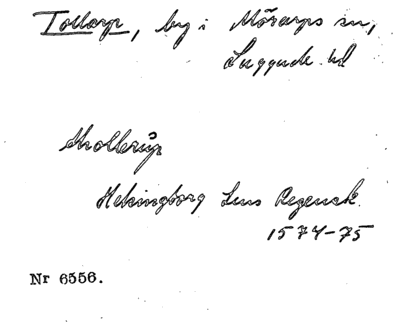 Tollarp, by i Mörarps sn,
Luggude hd
Thollerup
Helsingborg Lens Regensk.
1574-75
Nr 6556.